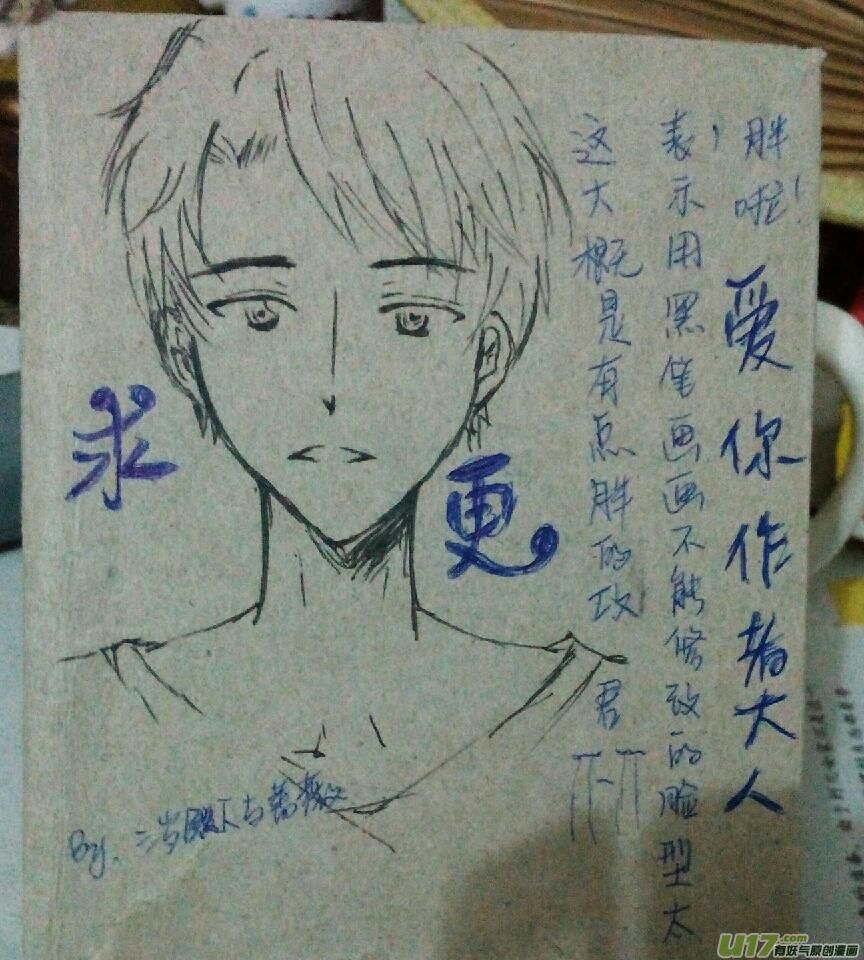 胖啦！爱你作者大人
表示用黑笔画画不能修改的脸型太
这大概是有点胖的攻 君 T-T
求更
By. 三岁殿下与蔷薇
U17.com
有妖气原创漫画